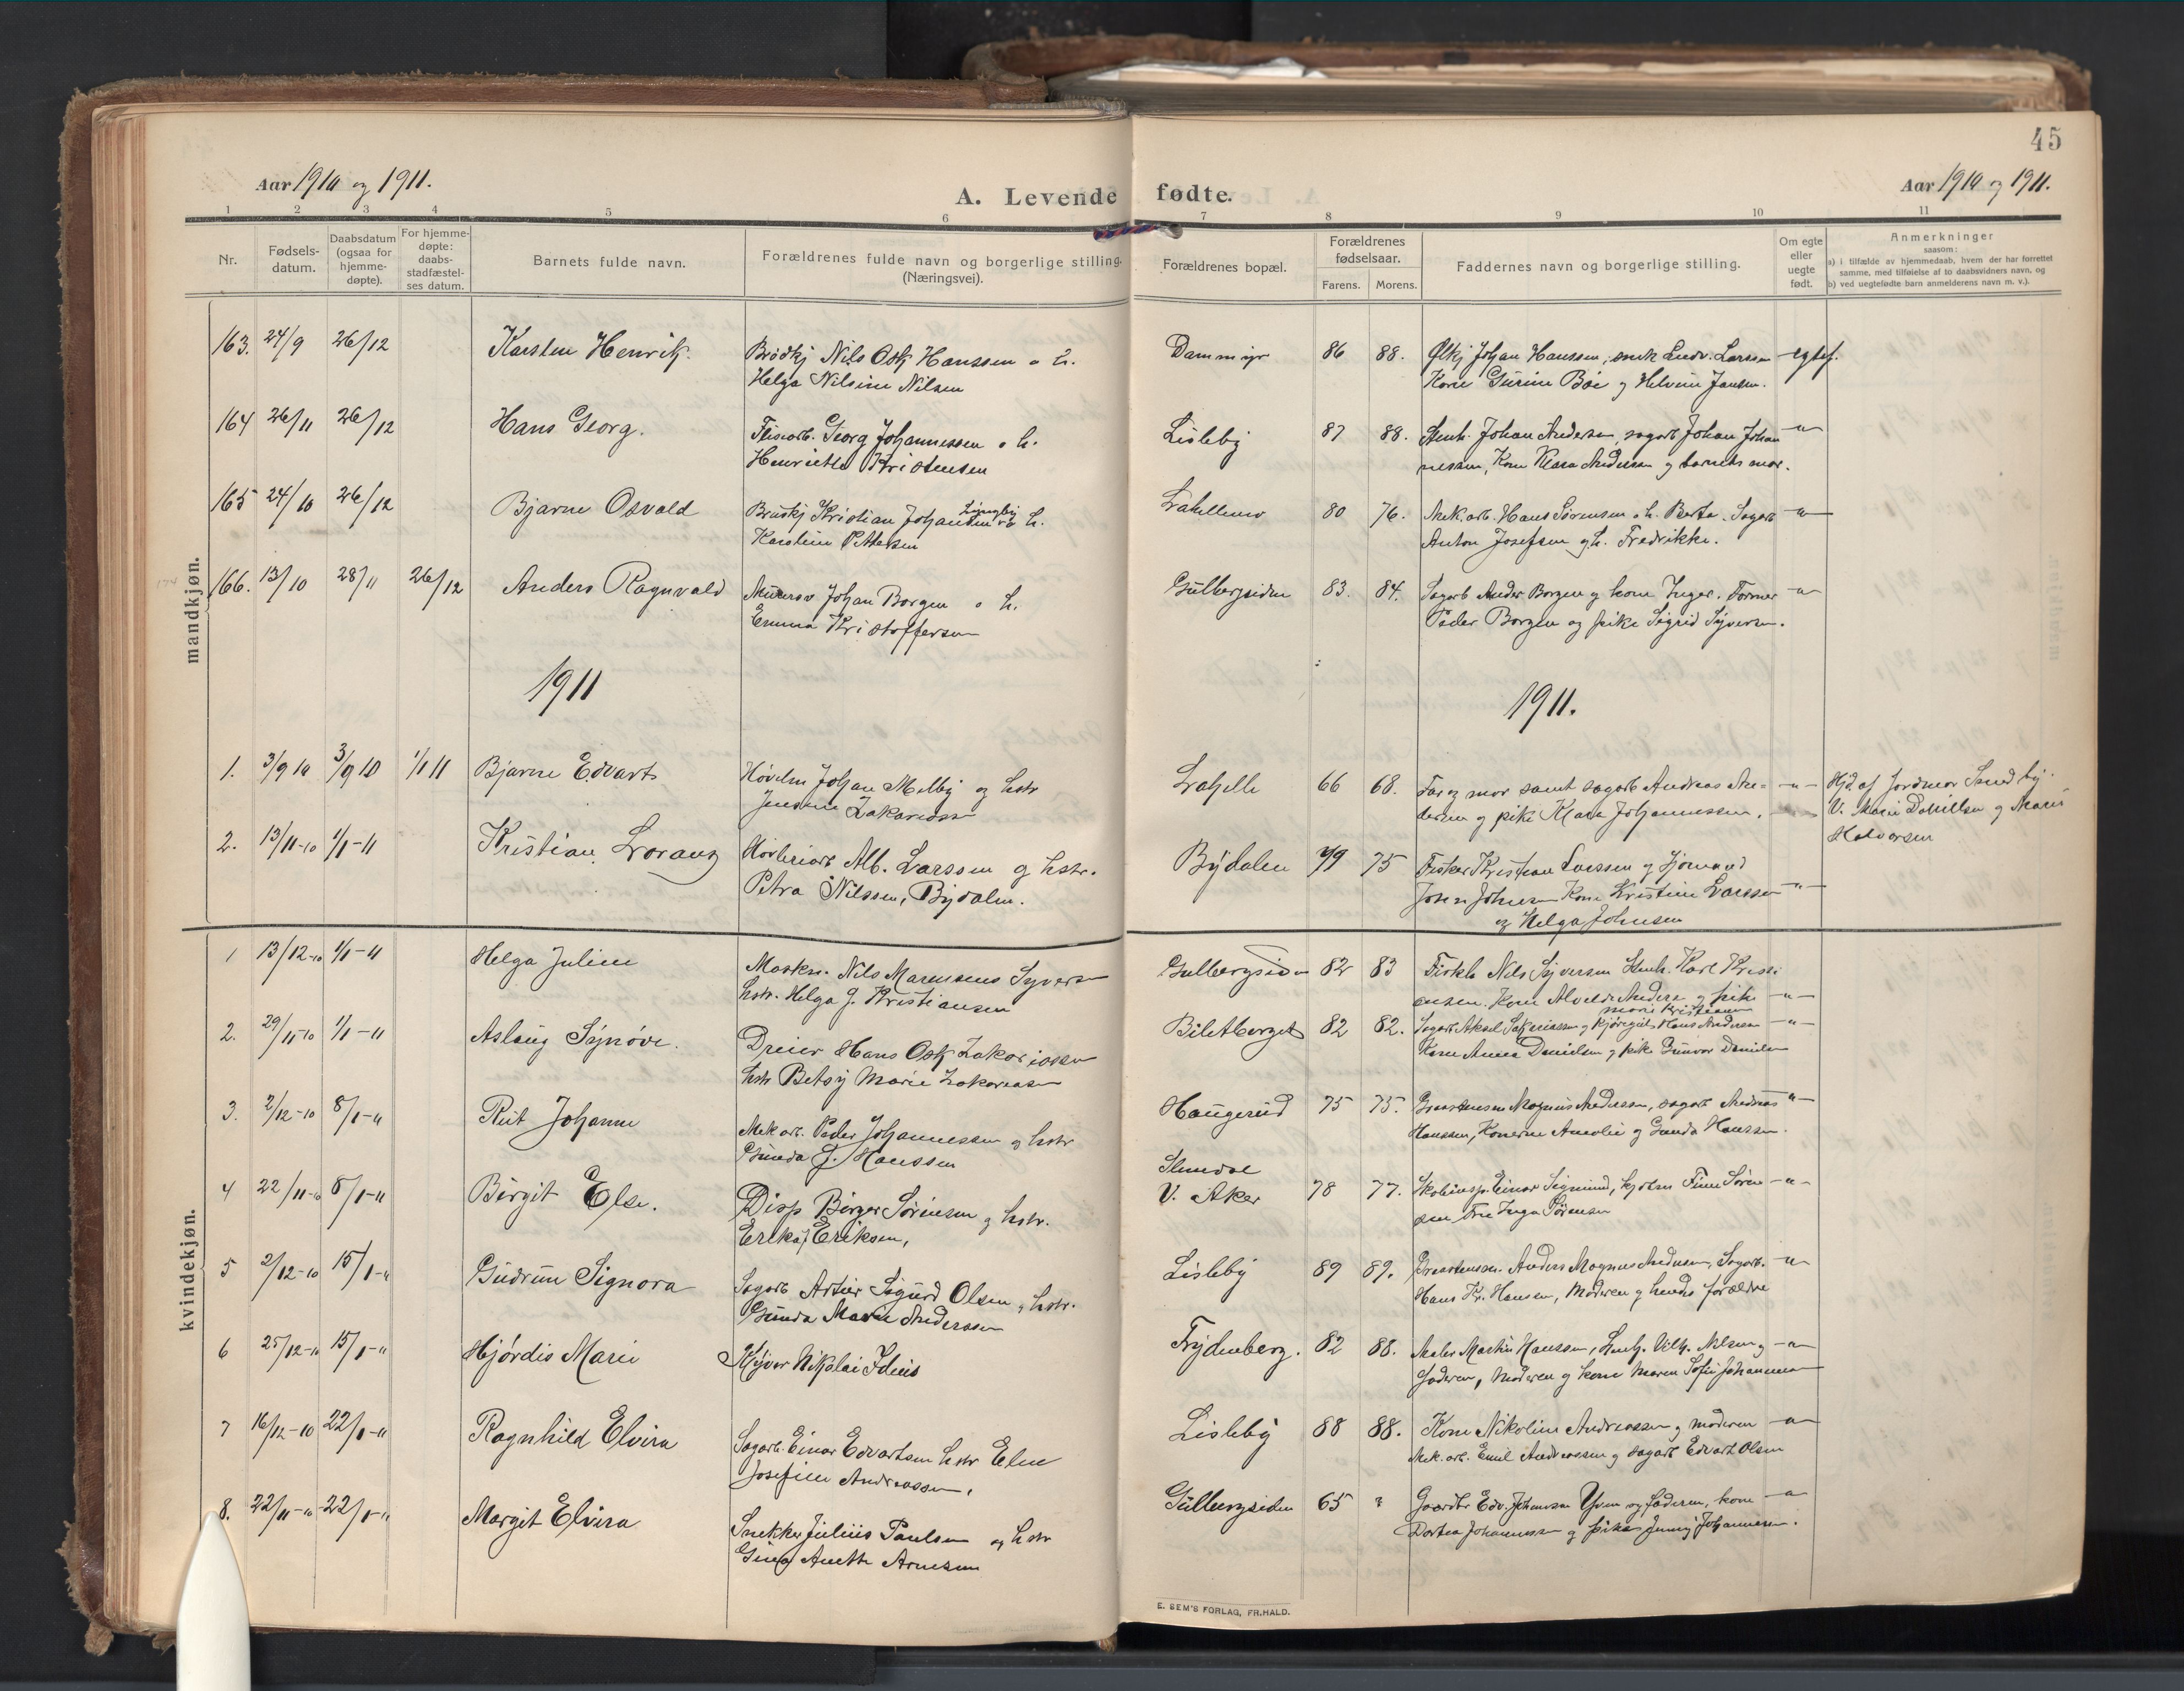 45
Aar 1910 og 1911.
A. Levende fødte.
Aar 1910 og 1911.
1 2 3 4 5 6 7 8 9 10 11
Nr.
Fødsels-
datum.
Daabsdatum
(ogsaa for
hjemme-
døpte).
For hjemme-
døpte:
daabs-
stadfæstel-
ses datum.
Barnets fulde navn.
Forældrenes fulde navn og borgerlige stilling.
(Næringsvei).
Forældrenes bopæl.
Forældrenes
fødselsaar.
Farens. Morens.
Faddernes navn og borgerlige stilling.
Om egte
eller
uegte
født.
Anmerkninger
saasom:
a) i tilfælde av hjemmedaab, hvem der har forrettet
samme, med tilføielse af to daabsvidners navn, og
b) ved uegtefødte barn anmelderens navn m. v.).
mandkjøn.
163. 24/9 26/12 Karsten Henrik. Brødkj Nils Osk Hanssen o h. Dammyr 86 88. Ølkj Johan Hanssen, snek Ludv. Larsen egtef.
Helga Nilsine Nilsen Kone Gurine Bøe og Helvine Jansen.
164 26/11 26/12 Hans Georg. Fliserb. Georg Johannessen o h. Lisleby 87 88. Stenh. Johan Andersen, sagarb Johan Johan -"-
Henriette Kristensen nessen, Kone Klara Andersen og barnets mor.
165 24/10 26/12 Bjarne Osvald Bruskj Kristian Johansen Lyngby o h. 80 76. Mek. arb. Hans Sørensen o h. Berta. Sagarb -"-
Karoline Pettersen Anton Josefsen og h. Fredrikke.
166. 13/10 28/11 26/12 Anders Ragnvald Murersv Johan Borgen o h. Gulbergsiden 83. 84. Sagarb Anders Borgen og kone Inger. Former -"-
Emma Kristoffersen Peder Borgen og pike Sigrid Syversen.
1911 1911.
1. 3/9 10 3/9 10 1/1 11 Bjarne Edvart Høvlem Johan Melby og hstr Lahelle 66 68. Far og mor samt sagarb Andreas An- -"- Hjd. af Jordmor Sundby.
Zakariassen dersen og pike Klara Johannessen. V. Marie Danielsen og Marie
Halvorsen
2. 13/11-10 1/1-11 Kristian Lorang Høvleriarb Alb. Larssen og hstr. Bydalen 79 75 Fisker Kristian Larssen og Sjømand
Petra Nilssen, Bydalen. Johnsen Kone Kristine Larssen -"-
og Helga Johnsen
kvindekjøn.
1 13/12-10 1/1-11 Helga Juline Maskn. Nils Marensius Syversen Gulbergsiden 82 83 Nils Syversen Stenh. Karl Kristi
hstr. Helga J. Kristiansen ansen. Kone Alvilde Anders og pike -"-
Marie Kristiansen
2. 29/11-10 1/1-11 Aslaug Synøve. Dreier Hans Osk Zakariassen Biletberget 82 82. Sagarb Aksel Zakariassen og kjøregut Hans Andersen -"-
hstr Betsy Marie Zakariasen Kone Anna Danielsen og pike Gunvor Danielsen
3. 2/12-10 8/1-11 Rut Johanne Mek arb. Peder Johannessen og hstr Haugerud 75 75. Magnus Andersen, sagarb Andreas -"-
Gunda J. Hanssen Hanssen, Konerne Amalie og Gunda Hanssen.
4 22/11-10 8/1-11 Birgit Else. Disp Birger Sørensen og hstr. Slemdal
V. Aker 78 77. Einar Sigmund, Finn Søren -"-
Erika Eriksen, sen Fru Inga Sørensen
5 2/12-10 15/1-11 Gudrun Signora Sagarb Artur Sigurd Olsen og hstr. Lisleby 89 89. Anders Magnus Andersen, Sagarb. -"-
Gunda Marie Anderssen Hans Kr. Hansen, Moderen og hendes forældre
6 25/12-10 15/1-11 Hjørdis Marie Skyver Nikolai Idenis Frydenberg. 82 88. Maler Martin Hanssen, Vilh. Nilsen og -"-
faderen, Moderen og kone Maren Sofie Johannesen
7 16/12-10 22/1-11 Ragnhild Elvira Sagarb. Einar Edvartsen hstr Eline Lisleby 88 88. Kone Nikoline Andreassen og moderen -"-
Josefine Andreassen, Mek. arb. Emil Andreassen og sagarb Edvart Olsen
8. 22/11-10 22/1-11 Margit Elvira Snekker Julius Paulsen og hstr Gulbergsiden 65 ? Gaardbr Edv. Johansen Yven og faderen, kone -"-
Gina Anette Arnesen Dortea Johannessen og pike Jenny Johannesen.
E. SEM'S FORLAG, FR.HALD.